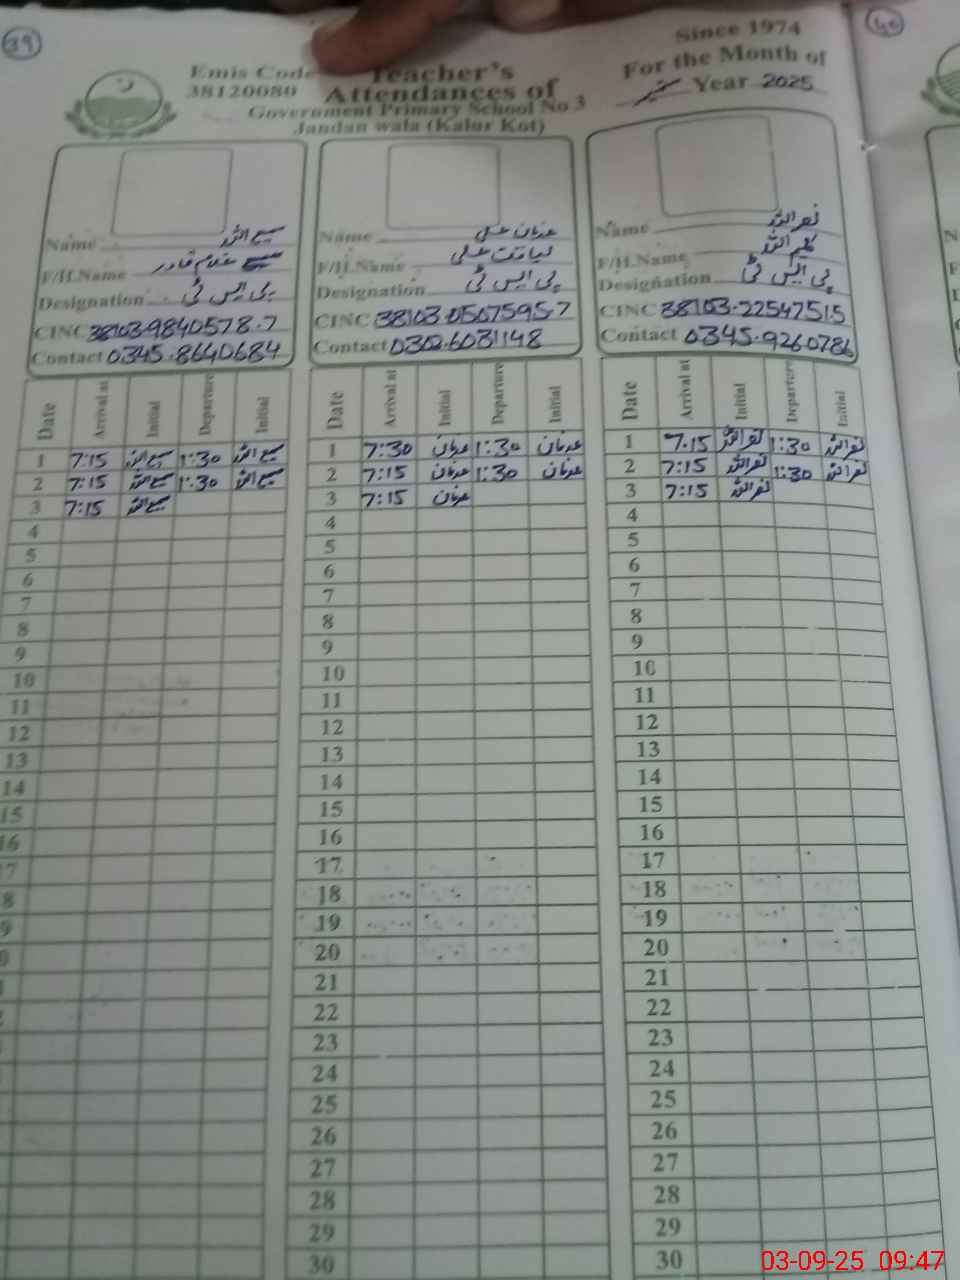 39
40
Since 1974
Emis Code
38120080
Teacher's
Attendances of
For the Month of
ستمبر Year 2025
Government Primary School No 3
Jandan wala (Kalur Kot)
Name سمیع اللہ
F/H.Name غلام قادر
Designation پی ایس ٹی
CINC 38103-9840578-7
Contact 0345-8640684
Name عدنان علی
F/H.Name لیاقت علی
Designation پی ایس ٹی
CINC 38103-0507595-7
Contact 0302-6031148
Name نصر اللہ
F/H.Name کلیم اللہ
Designation پی ایس ٹی
CINC 38103-22547515
Contact 0345-9260786
Date Arrival at Initial Departure Initial
1 7:15 سمیع اللہ 1:30 سمیع اللہ
2 7:15 سمیع اللہ 1:30 سمیع اللہ
3 7:15 سمیع اللہ
4
5
6
7
8
9
10
11
12
13
14
15
16
17
8
9
0
Date Arrival at Initial Departure Initial
1 7:30 عدنان 1:30 عدنان
2 7:15 عدنان 1:30 عدنان
3 7:15 عدنان
4
5
6
7
8
9
10
11
12
13
14
15
16
17
18
19
20
21
22
23
24
25
26
27
28
29
30
Date Arrival at Initial Departure Initial
1 7:15 نصر اللہ 1:30 نصر اللہ
2 7:15 نصر اللہ 1:30 نصر اللہ
3 7:15 نصر اللہ
4
5
6
7
8
9
10
11
12
13
14
15
16
17
18
19
20
21
22
23
24
25
26
27
28
29
30
03-09-25 09:47